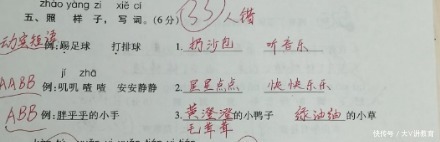 zhào yàng zǐ xiě cí
五、照 样 子，写 词。(6分) 35人错
动宾短语 例：踢足球 打排球 1. 扔沙包 听音乐
jī zhā
AABB 例：叽叽喳喳 安安静静 2. 星星点点 快快乐乐
ABB 例：胖乎乎的小手 3. 黄澄澄的小鸭子 绿油油的小草
毛茸茸
快传号/大V讲教育